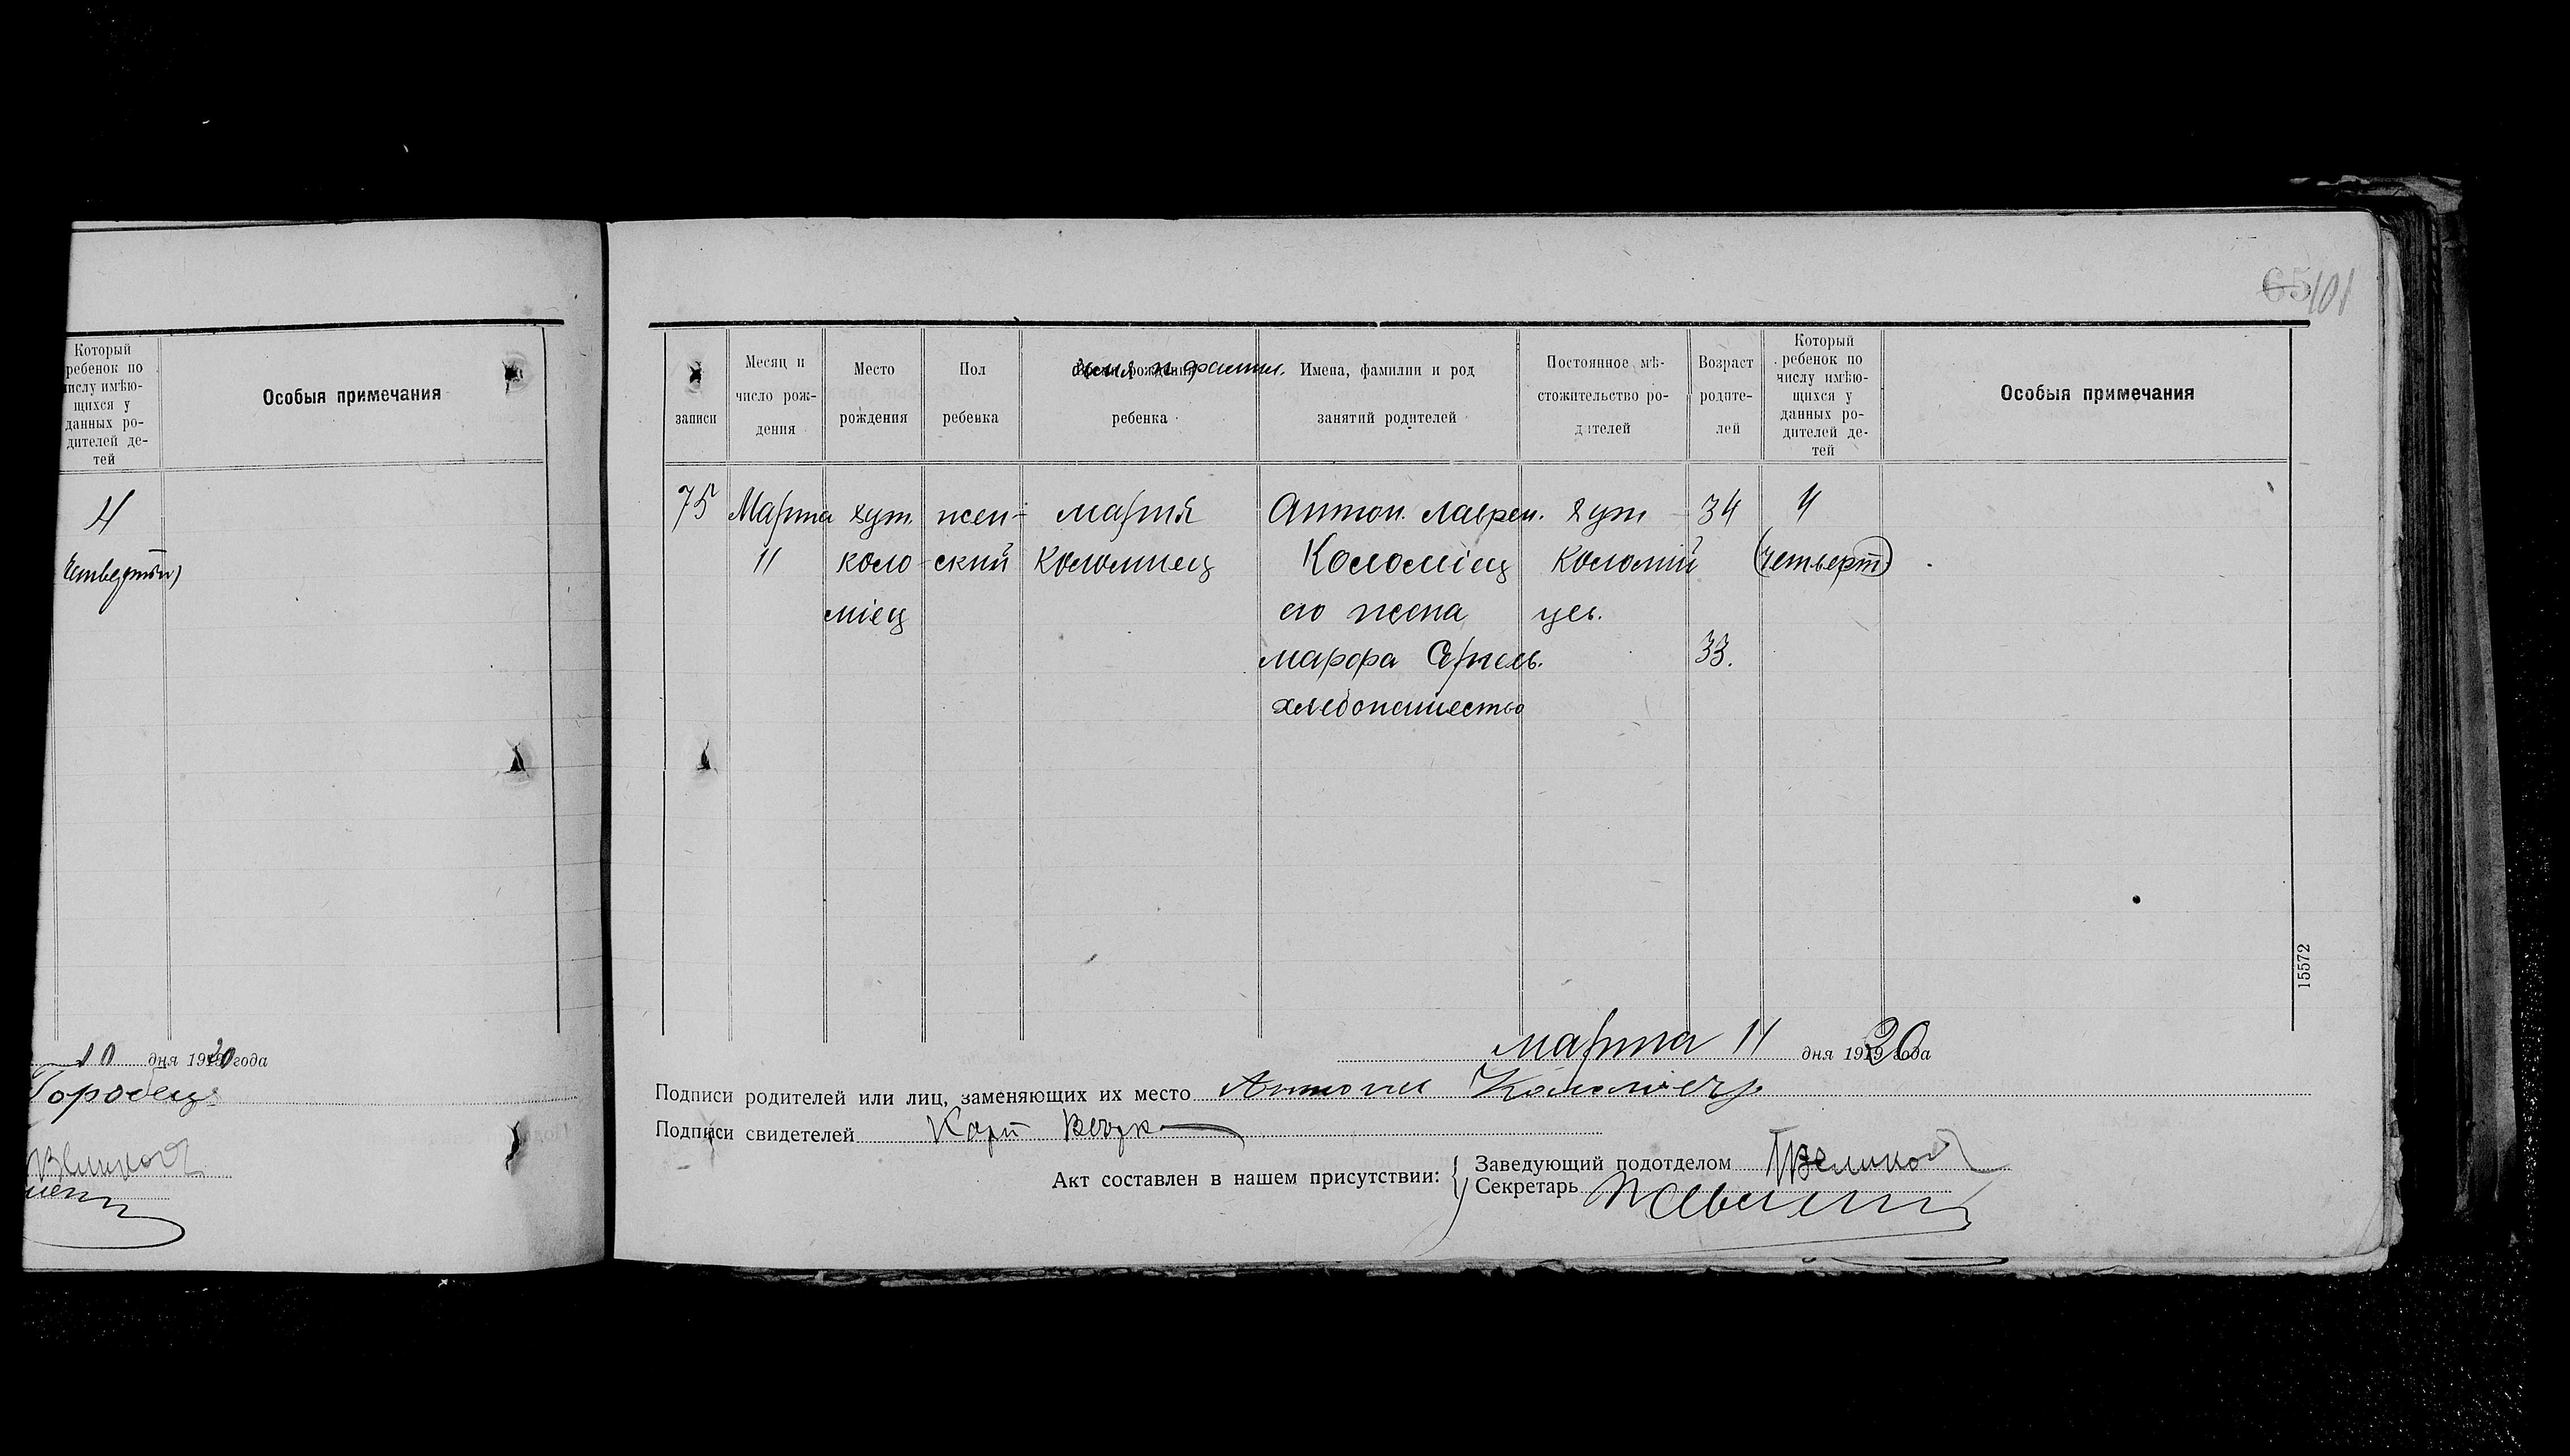 Который
ребенок по
числу имѣю-
щихся у
данных ро-
дителей де-
тей
Особыя примечания
4
10 дня 1920 года
Городец
65 101
записи
Месяц и
число рож-
дения
Место
рождения
Пол
ребенка
имя и фамил.
ребенка
Имена, фамилии и род
занятий родителей
Постоянное мѣ-
стожительство ро-
дителей
Возраст
родите-
лей
Который
ребенок по
числу имѣю-
щихся у
данных ро-
дителей де-
тей
Особыя примечания
75
Марта
11
хут
коло
міец
жен-
ский
мария
Коломиец
Антон. лаврен.
Коломіец
его жена
марфа
хлебопашество
хут
Коломий
цев.
34
33.
4
(четверт)
15572
марта 11 дня 1920 года
Подписи родителей или лиц, заменяющих их место Антон Коломіец
Подписи свидетелей Карп
Акт составлен в нашем присутствии:
Заведующий подотделом
Секретарь